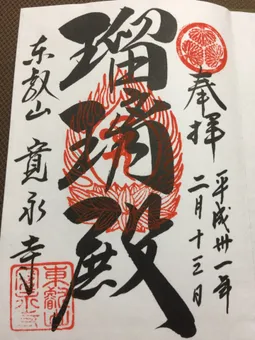 奉拝
平成卅一年
二月十三日
瑠璃殿
東叡山 寛永寺